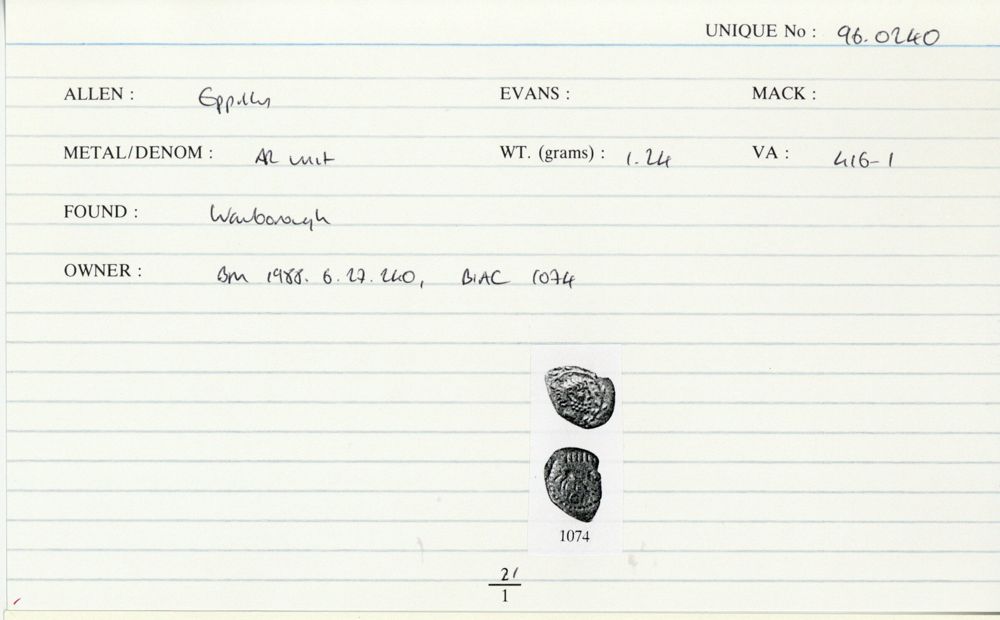 UNIQUE No : 96.0240
ALLEN : Eppillus EVANS : MACK :
METAL/DENOM : AR unit WT. (grams) : 1.24 VA : 416-1
FOUND : Warborough
OWNER : BM 1988. 6. 27. 240, BIAC 1074
1074
21
1